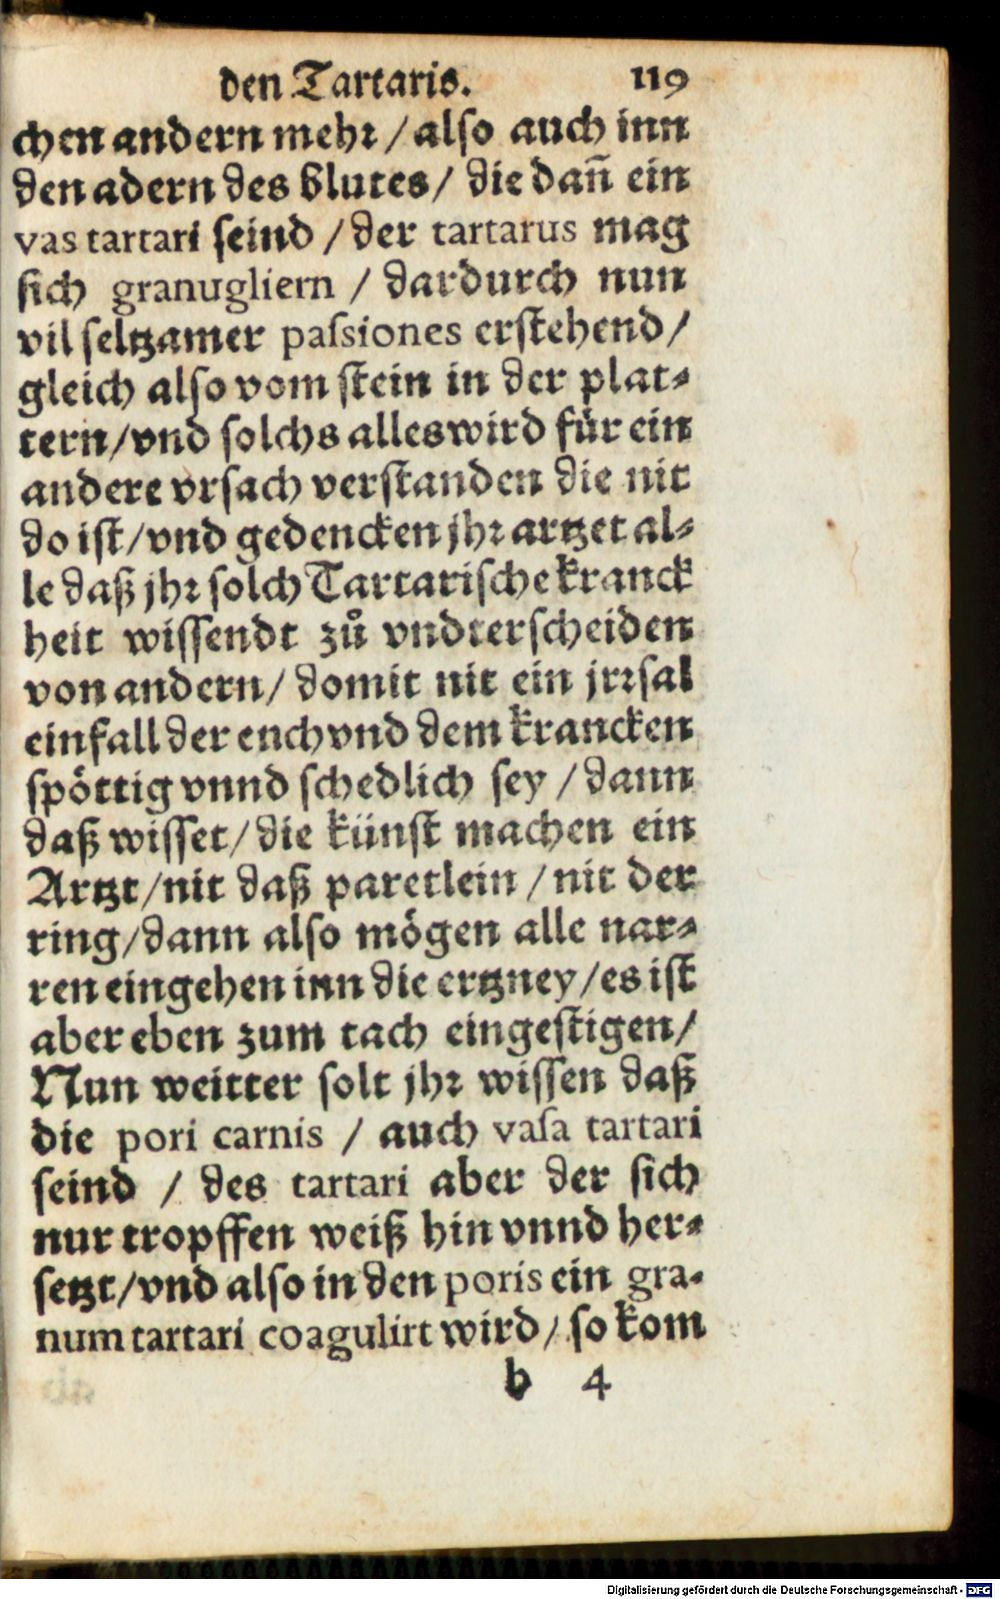 den Tartaris. 119
chen andern mehr / also auch inn
den adern des blutes / die dañ ein
vas tartari seind / der tartarus mag
sich granugliern / dardurch nun
vil seltzamer passiones erstehend /
gleich also vom stein in der plat-
tern / vnd solchs alles wird für ein
andere vrsach verstanden die nit
do ist / vnd gedencken jhr artzet al-
le daß jhr solch Tartarische kranck
heit wissendt zů vndterscheiden
von andern / domit nit ein jrrsal
einfall der euch vnd dem krancken
spöttig vnnd schedlich sey / dann
daß wisset / die künst machen ein
Artzt / nit daß paretlein / nit der
ring / dann also mögen alle nar-
ren eingehen inn die ertzney / es ist
aber eben zum tach eingestigen /
Nun weitter solt jhr wissen daß
die pori carnis / auch vasa tartari
seind / des tartari aber der sich
nur tropffen weiß hin vnnd her-
setzt / vnd also in den poris ein gra-
num tartari coagulirt wird / so kom
h 4
Digitalisierung gefördert durch die Deutsche Forschungsgemeinschaft - DFG